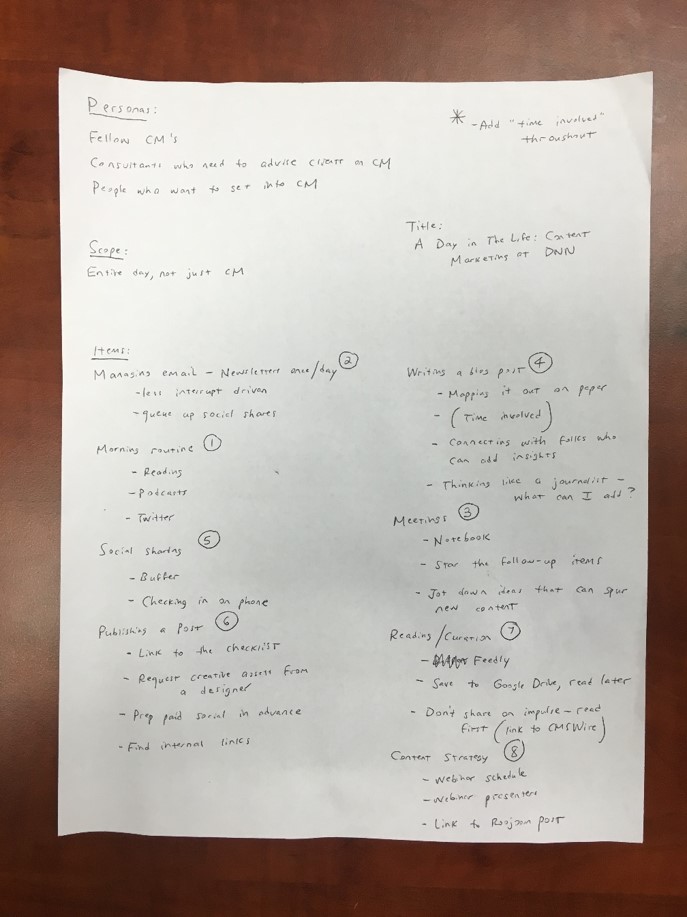 Personas:
Fellow CM's
Consultants who need to advise clients on CM
People who want to get into CM
* -Add "time involved"
throughout
Title:
A Day in The Life: Content
Marketing at DNN
Scope:
Entire day, not just CM
Items:
Managing email - Newsletters once/day 2
-less interrupt driven
-queue up social shares
Morning routine 1
- Reading
- Podcasts
- Twitter
Social sharing 5
- Buffer
- Checking in on phone
Publishing a Post 6
- Link to the checklist
- Request creative assets from
a designer
- Prep paid social in advance
- Find internal links
Writing a blog post 4
- Mapping it out on paper
- (Time involved)
- Connecting with folks who
can add insights
- Thinking like a journalist -
what can I add?
Meetings 3
- Notebook
- Star the follow-up items
- Jot down ideas that can spur
new content
Reading/Curation 7
- Feedly
- Save to Google Drive, read later
- Don't share on impulse - read
first (link to CMSWire)
Content Strategy 8
- Webinar schedule
- Webinar presenters
- Link to post